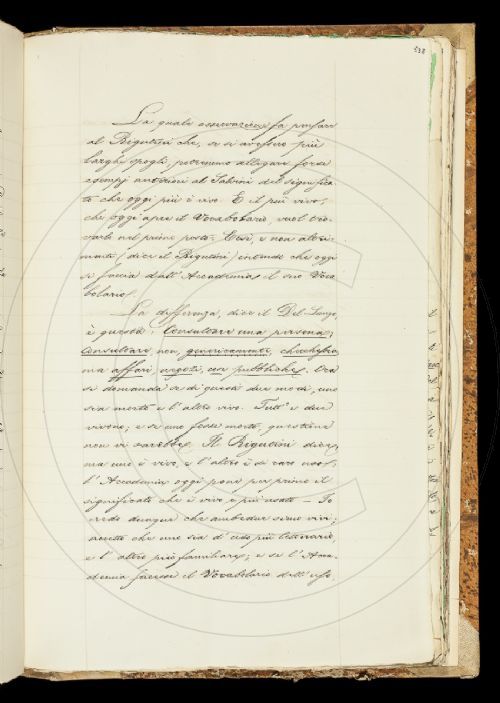 538
La quale osservazione fa pensare
al Rigutini che, se si avessero più
larghi spogli, potremmo allegare forse
esempj anteriori al Salvini del significa-
to che oggi più è vivo. E il più vivo,
che oggi apre il Vocabolario, vuol tro-
varlo nel primo posto. Così, e non altri-
menti (dice il Rigutini) intende che oggi
si faccia dall'Accademia il suo Voca-
bolario.
La differenza, dice il Del Lungo,
è questa. Consultare una persona;
Consultare non, genericamente, checchessia
ma affari, negozi, cose pubbliche. Ora
si domanda se di questi due modi, uno
sia morto e l'altro vivo. Tutt'e due
vivono; e se uno fosse morto, questione
non vi sarebbe. Il Rigutini dice,
ma uno è vivo, e l'altro è di raro uso;
l'Accademia oggi pone per primo il
significato che è vivo e più usato – Io
credo dunque che ambedue sieno vivi;
ammetto che uno sia d'uso più letterario
e l'altro più familiare; e se l'Acca-
demia facesse il Vocabolario dell'uso,